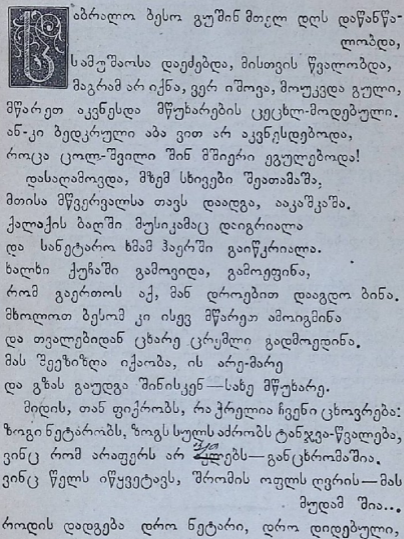 საბრალო ბესო გუშინ მთელ დღს დაწანწა-
ლობდა,
სამუშაოსა დაეძებდა, მისთვის წვალობდა,
მაგრამ არ იქნა, ვერ იშოვა, მოუკვდა გული,
მწარეთ აკვნესდა მწუხარების ცეცხლ-მოდებული.
ან-კი ბედკრული აბა ვით არ აკვნესდებოდა,
როცა ცოლ-შვილი შინ მშიერი ეგულებოდა!
დასაღამოვდა, მზემ სხივები შეათამაშა,
მთისა მწვერვალსა თავს დაადგა, ააკაშკაშა.
ქალაქის ბაღში მუსიკამაც დაიგრიალა
და სანეტარო ხმამ ჰაერში გაიწკრიალა.
ხალხი ქუჩაში გამოვიდა, გამოეფინა,
რომ გაერთოს აქ, მან დროებით დააგდო ბინა.
მხოლოთ ბესომ კი ისევ მწარეთ ამოიგმინა
და თვალებიდან ცხარე ცრემლი გადმოედინა.
მას შეეზიზღა იქაობა, ის არე-მარე
და გზას გაუდგა შინისკენ—სახე მწუხარე.
მიდის, თან ფიქრობს, რა ჭრელია ჩვენი ცხოვრება:
ზოგი ნეტარობს, ზოგს სულს აძრობს ტანჯვა-წვალება,
ვინც რომ არაფერს არ —განცხრომაშია.
ვინც წელს იწყვეტავს, შრომის ოფლს ღვრის—მას
მუდამ შია...
როდის დადგება დრო ნეტარი, დრო დიდებული,